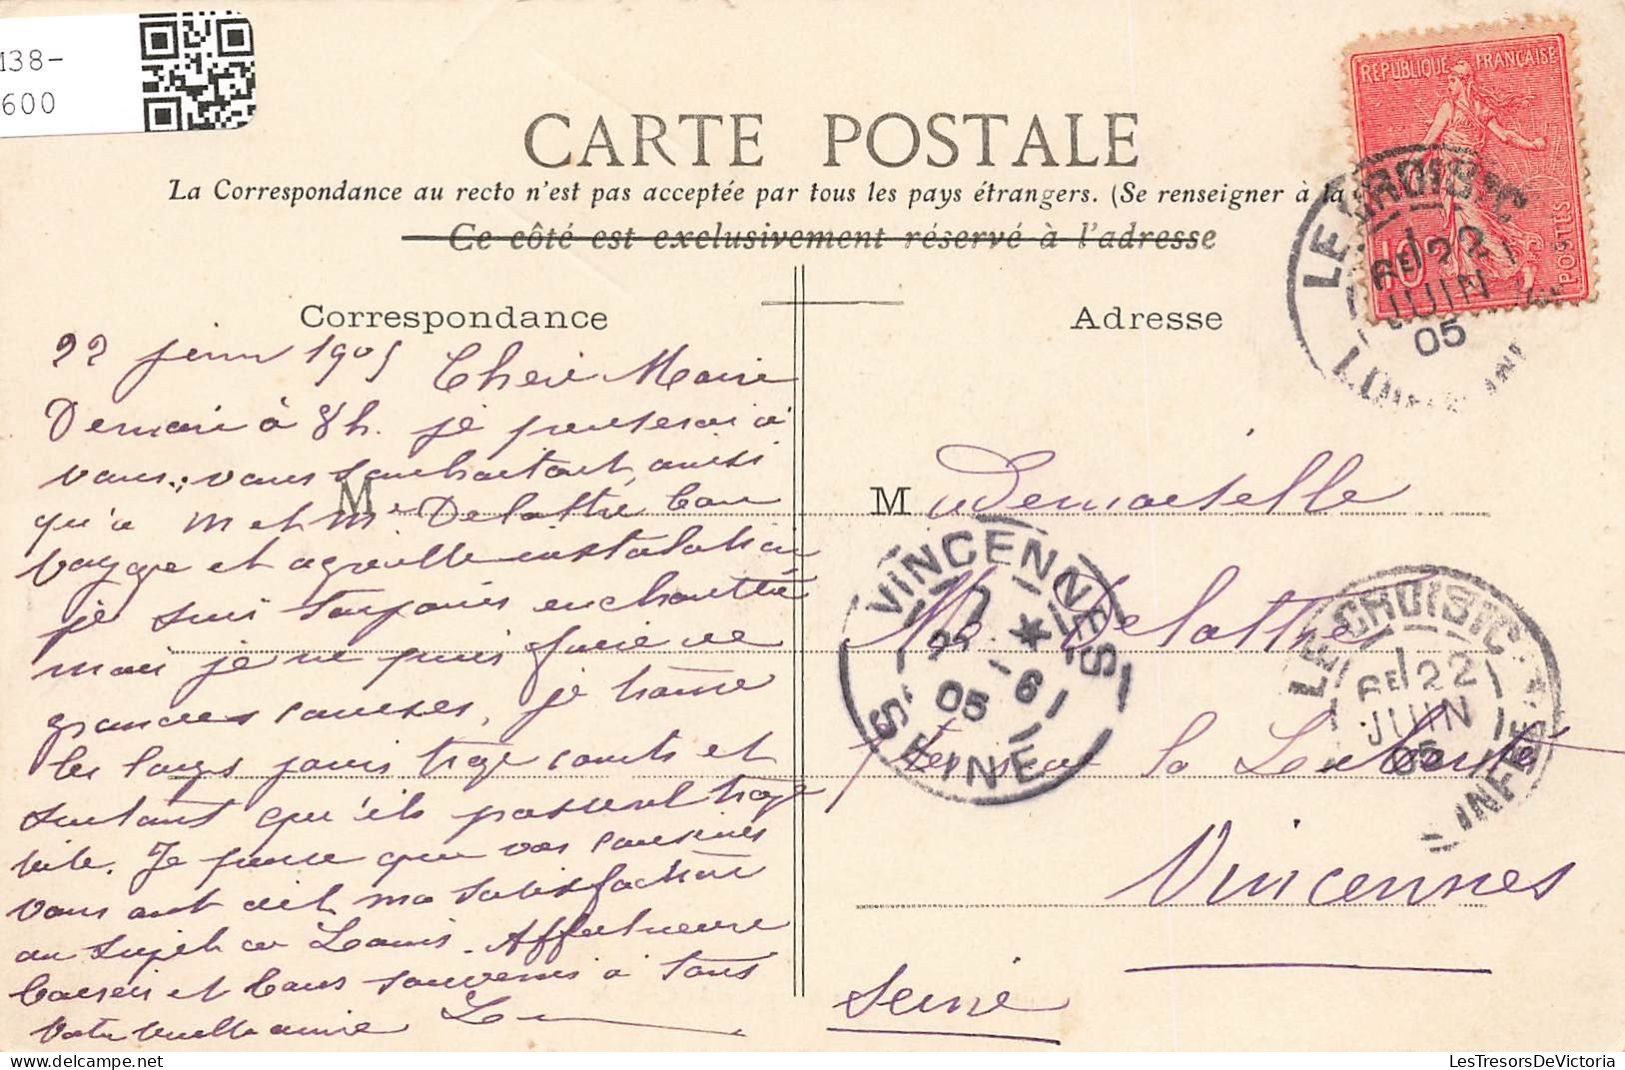 M38-
600
CARTE POSTALE
La Correspondance au recto n'est pas acceptée par tous les pays étrangers. (Se renseigner à la
Ce côté est exclusivement réservé à l'adresse
Correspondance
22 juin 1905 Cheri Marie
Demain à 8h. je penserai à
vous ; vous souhaitant, ainsi
qu'a M et Me Delattre bon
voyage et agréable installation
je suis toujours enchantée
mais je ne puis faire de
grandes courses, je trouve
les jours trop courts et
surtout qu'ils passent trop
vite. Je pense que vos cousines
vous ont dit ma satisfaction
au sujet de Louis. Affectueux
baisers et bons souvenirs à tous
Votre vieille amie L
Adresse
M ademoiselle
M. Delattre
la
Vincennes
Seine
REPUBLIQUE FRANÇAISE
POSTES
10
LE CROISIC
22
JUIN
05
VINCENNES
22 -6
05
SEINE
LE CROISIC
22
JUIN
05
INFRE
LesTresorsDeVictoria